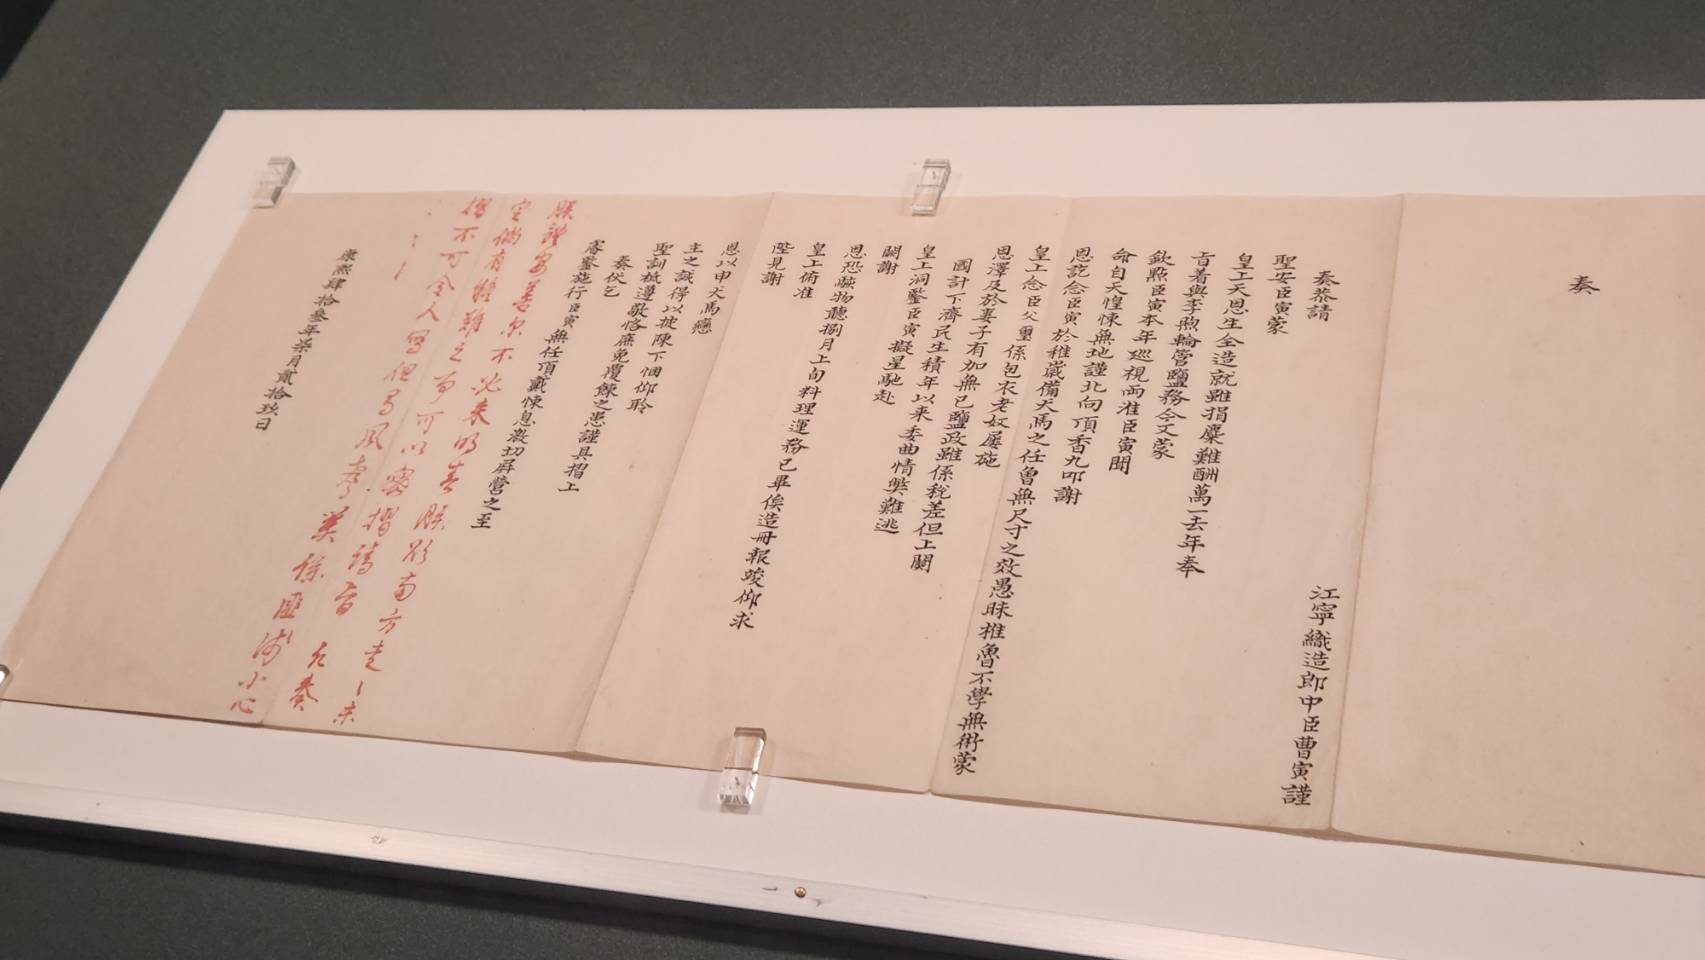 奏
江寧織造郎中臣曹寅謹
奏恭請
聖安臣寅蒙
皇上天恩生全造就雖捐糜難酬萬一去年奉
旨著與李煦輪管鹽務今又蒙
欽點臣寅本年巡視兩淮臣寅聞
命自天惶悚無地謹北向頂香九叩謝
恩訖念臣寅於稚歲備犬馬之任曾無尺寸之效愚昧椎魯不學無術蒙
皇上念臣父璽係包衣老奴屢施
恩澤及於妻子有加無已鹽政雖係稅差但上關
國計下濟民生積年以來委曲情弊難逃
皇上洞鑒臣寅擬星馳赴
闕謝
恩恐駭物聽捌月上旬料理運務已畢俟造冊報竣仰求
皇上俯准
陛見謝
恩以申犬馬戀
主之誠得以披陳下悃仰聆
聖訓祗遵敬恪庶免覆餗之患謹具摺上
奏伏乞
睿鑒施行臣寅無任頂戴悚息激切屏營之至
朕體安善爾不必來明春朕欲南方走走未
定倘有疑難之事可以密摺請旨凡奏
摺不可令人寫但有風聲關係匪淺小心
康熙肆拾叁年柒月貳拾玖日